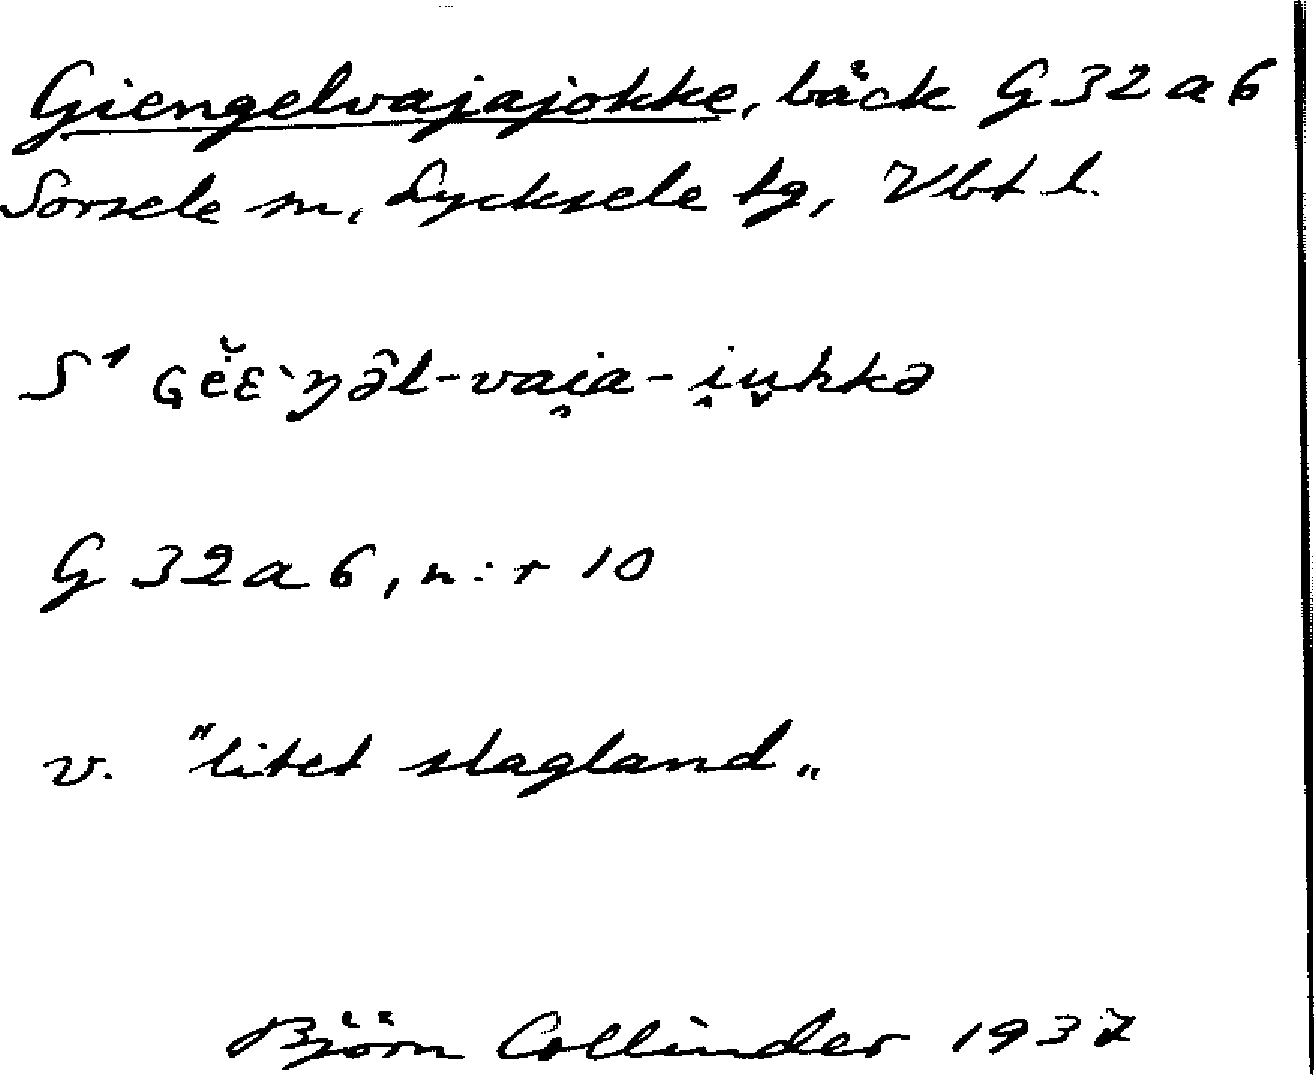 Giengelvajajokke, bäck G 32 a 6
Sorsele sn, Lycksele tg, Vbt l.
S¹ ɢĕɛ`ŋə̑l-vai̯a-i̯u̬hkə
G 32 a 6, n:r 10
v. "litet slagland"
Björn Collinder 1937